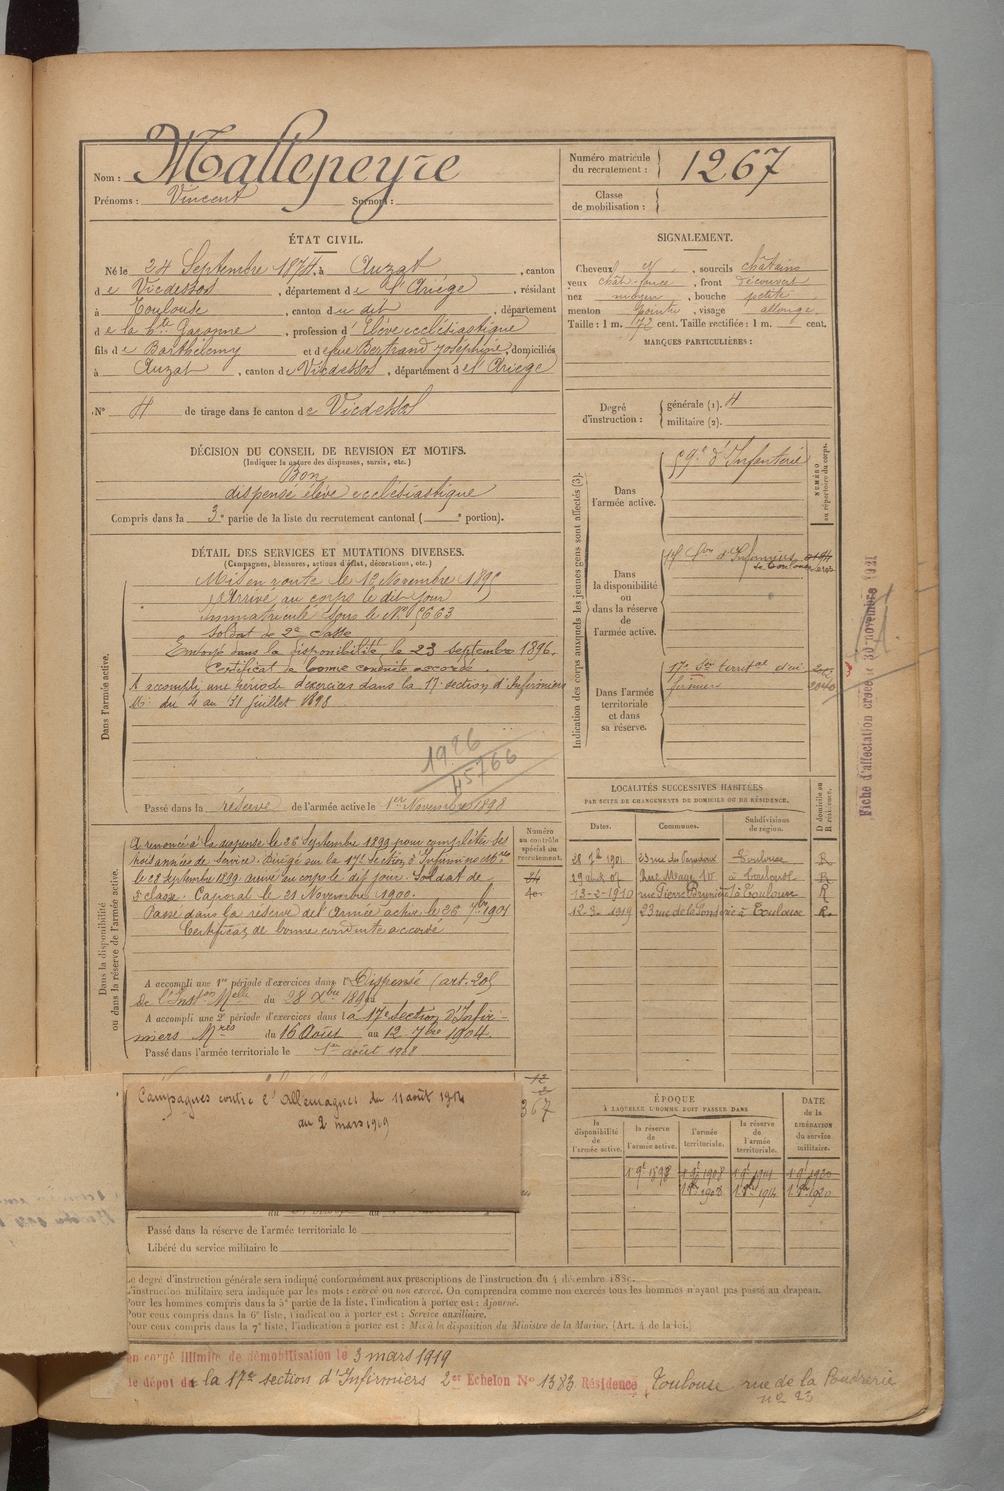 Nom : Mallepeyre
Prénoms : Vincent Surnom :
Numéro matricule
du recrutement : 1267
Classe
de mobilisation :
ÉTAT CIVIL.
Né le 24 Septembre 1874, à Auzat, canton
de Vicdessos, département de l'Ariège, résidant
à Toulouse, canton du dit, département
de la Hte Garonne, profession d'Élève ecclésiastique
fils de Barthélemy et de feue Bertrand Joséphine, domiciliés
à Auzat, canton de Vicdessos, département de l'Ariège
N° 4 de tirage dans le canton de Vicdessos
SIGNALEMENT.
Cheveux, sourcils châtains
yeux chât. foncé, front découvert
nez moyen, bouche petite
menton pointu, visage allongé
Taille : 1 m. 72 cent. Taille rectifiée : 1 m. cent.
MARQUES PARTICULIÈRES :
Degré
d'instruction :
générale (1). 4
militaire (2).
DÉCISION DU CONSEIL DE REVISION ET MOTIFS.
(Indiquer la nature des dispenses, sursis, etc.)
Bon
dispensé élève ecclésiastique
Compris dans la 3e partie de la liste du recrutement cantonal ( e portion).
DÉTAIL DES SERVICES ET MUTATIONS DIVERSES.
(Campagnes, blessures, actions d'éclat, décorations, etc.)
Dans l'armée active.
Mis en route le 12 Novembre 1895
Arrivé au corps le dit jour
immatriculé sous le No 5663
Soldat de 2e classe
Envoyé dans la disponibilité le 23 septembre 1896.
Certificat de bonne conduite accordé.
A accompli une période d'exercices dans la 17e section d'Infirmiers
Mres du 4 au 31 juillet 1898
1926
45766
Passé dans la réserve de l'armée active le 1er Novembre 1898
Dans la disponibilité
ou dans la réserve de l'armée active.
A renoncé à la dispense le 26 Septembre 1899 pour compléter ses
trois années de service. Dirigé sur la 17e Section d'Infirmiers Mres
le 28 Septembre 1899 arrivé au corps le dit jour. Soldat de
2e classe. Caporal le 21 Novembre 1900.
Passé dans la réserve de l'Armée active le 26 7bre 1901
Certificat de bonne conduite accordé
Numéro
au contrôle
spécial du
recrutement.
A accompli une 1re période d'exercices dans l Dispensé (art. 20)
de l'Inston Melle du 28 Xbre 1895 au
A accompli une 2e période d'exercices dans la 17e section d'Infir-
miers Mres du 16 Août au 12 7bre 1904.
Passé dans l'armée territoriale le 1er août 1908
367
Campagnes contre l'Allemagnes du 11 août 1914
au 2 mars 1919
Passé dans la réserve de l'armée territoriale le
Libéré du service militaire le
Indication des corps auxquels les jeunes gens sont affectés (3).
NUMÉRO
au répertoire du corps.
Dans
l'armée active.
59e d'Infanterie
Dans
la disponibilité
ou
dans la réserve
de
l'armée active.
17e Son d'Infirmiers
de Toulouse
Dans l'armée
territoriale
et dans
sa réserve.
17e Son territale d'in
firmiers
2040
Fiche d'affectation créée le 30 novembre 1921
LOCALITÉS SUCCESSIVES HABITÉES
PAR SUITE DE CHANGEMENTS DE DOMICILE OU DE RÉSIDENCE.
Dates. Communes. Subdivisions
de région. D domicile ou
R résidence.
28 7bre 1901 23 rue du Toulouse R
à Toulouse R
13-2-1910 rue Pierre à Toulouse R
1919 23 rue de la à Toulouse R.
ÉPOQUE
À LAQUELLE L'HOMME DOIT PASSER DANS
la
disponibilité
de
l'armée active.
la réserve
de
l'armée active.
l'armée
territoriale.
la réserve
de
l'armée
territoriale.
DATE
de la
LIBÉRATION
du service
militaire.
1 9e 1898 1 9e 1908 1 9e 1914 1 9e 1920
1908 1914 1920
Le degré d'instruction générale sera indiqué conformément aux prescriptions de l'instruction du 4 décembre 1889.
L'instruction militaire sera indiquée par les mots : exercé ou non exercé. On comprendra comme non exercés tous les hommes n'ayant pas passé au drapeau.
Pour les hommes compris dans la 5e partie de la liste, l'indication à porter est : Ajourné.
Pour ceux compris dans la 6e liste, l'indication à porter est : Service auxiliaire.
Pour ceux compris dans la 7e liste, l'indication à porter est : Mis à la disposition du Ministre de la Marine. (Art. 4 de la loi.)
en congé illimité de démobilisation le 3 mars 1919
le dépôt de la 17e section d'Infirmiers 2er Echelon No 1383 Résidence Toulouse rue de la Poudrerie
no 23